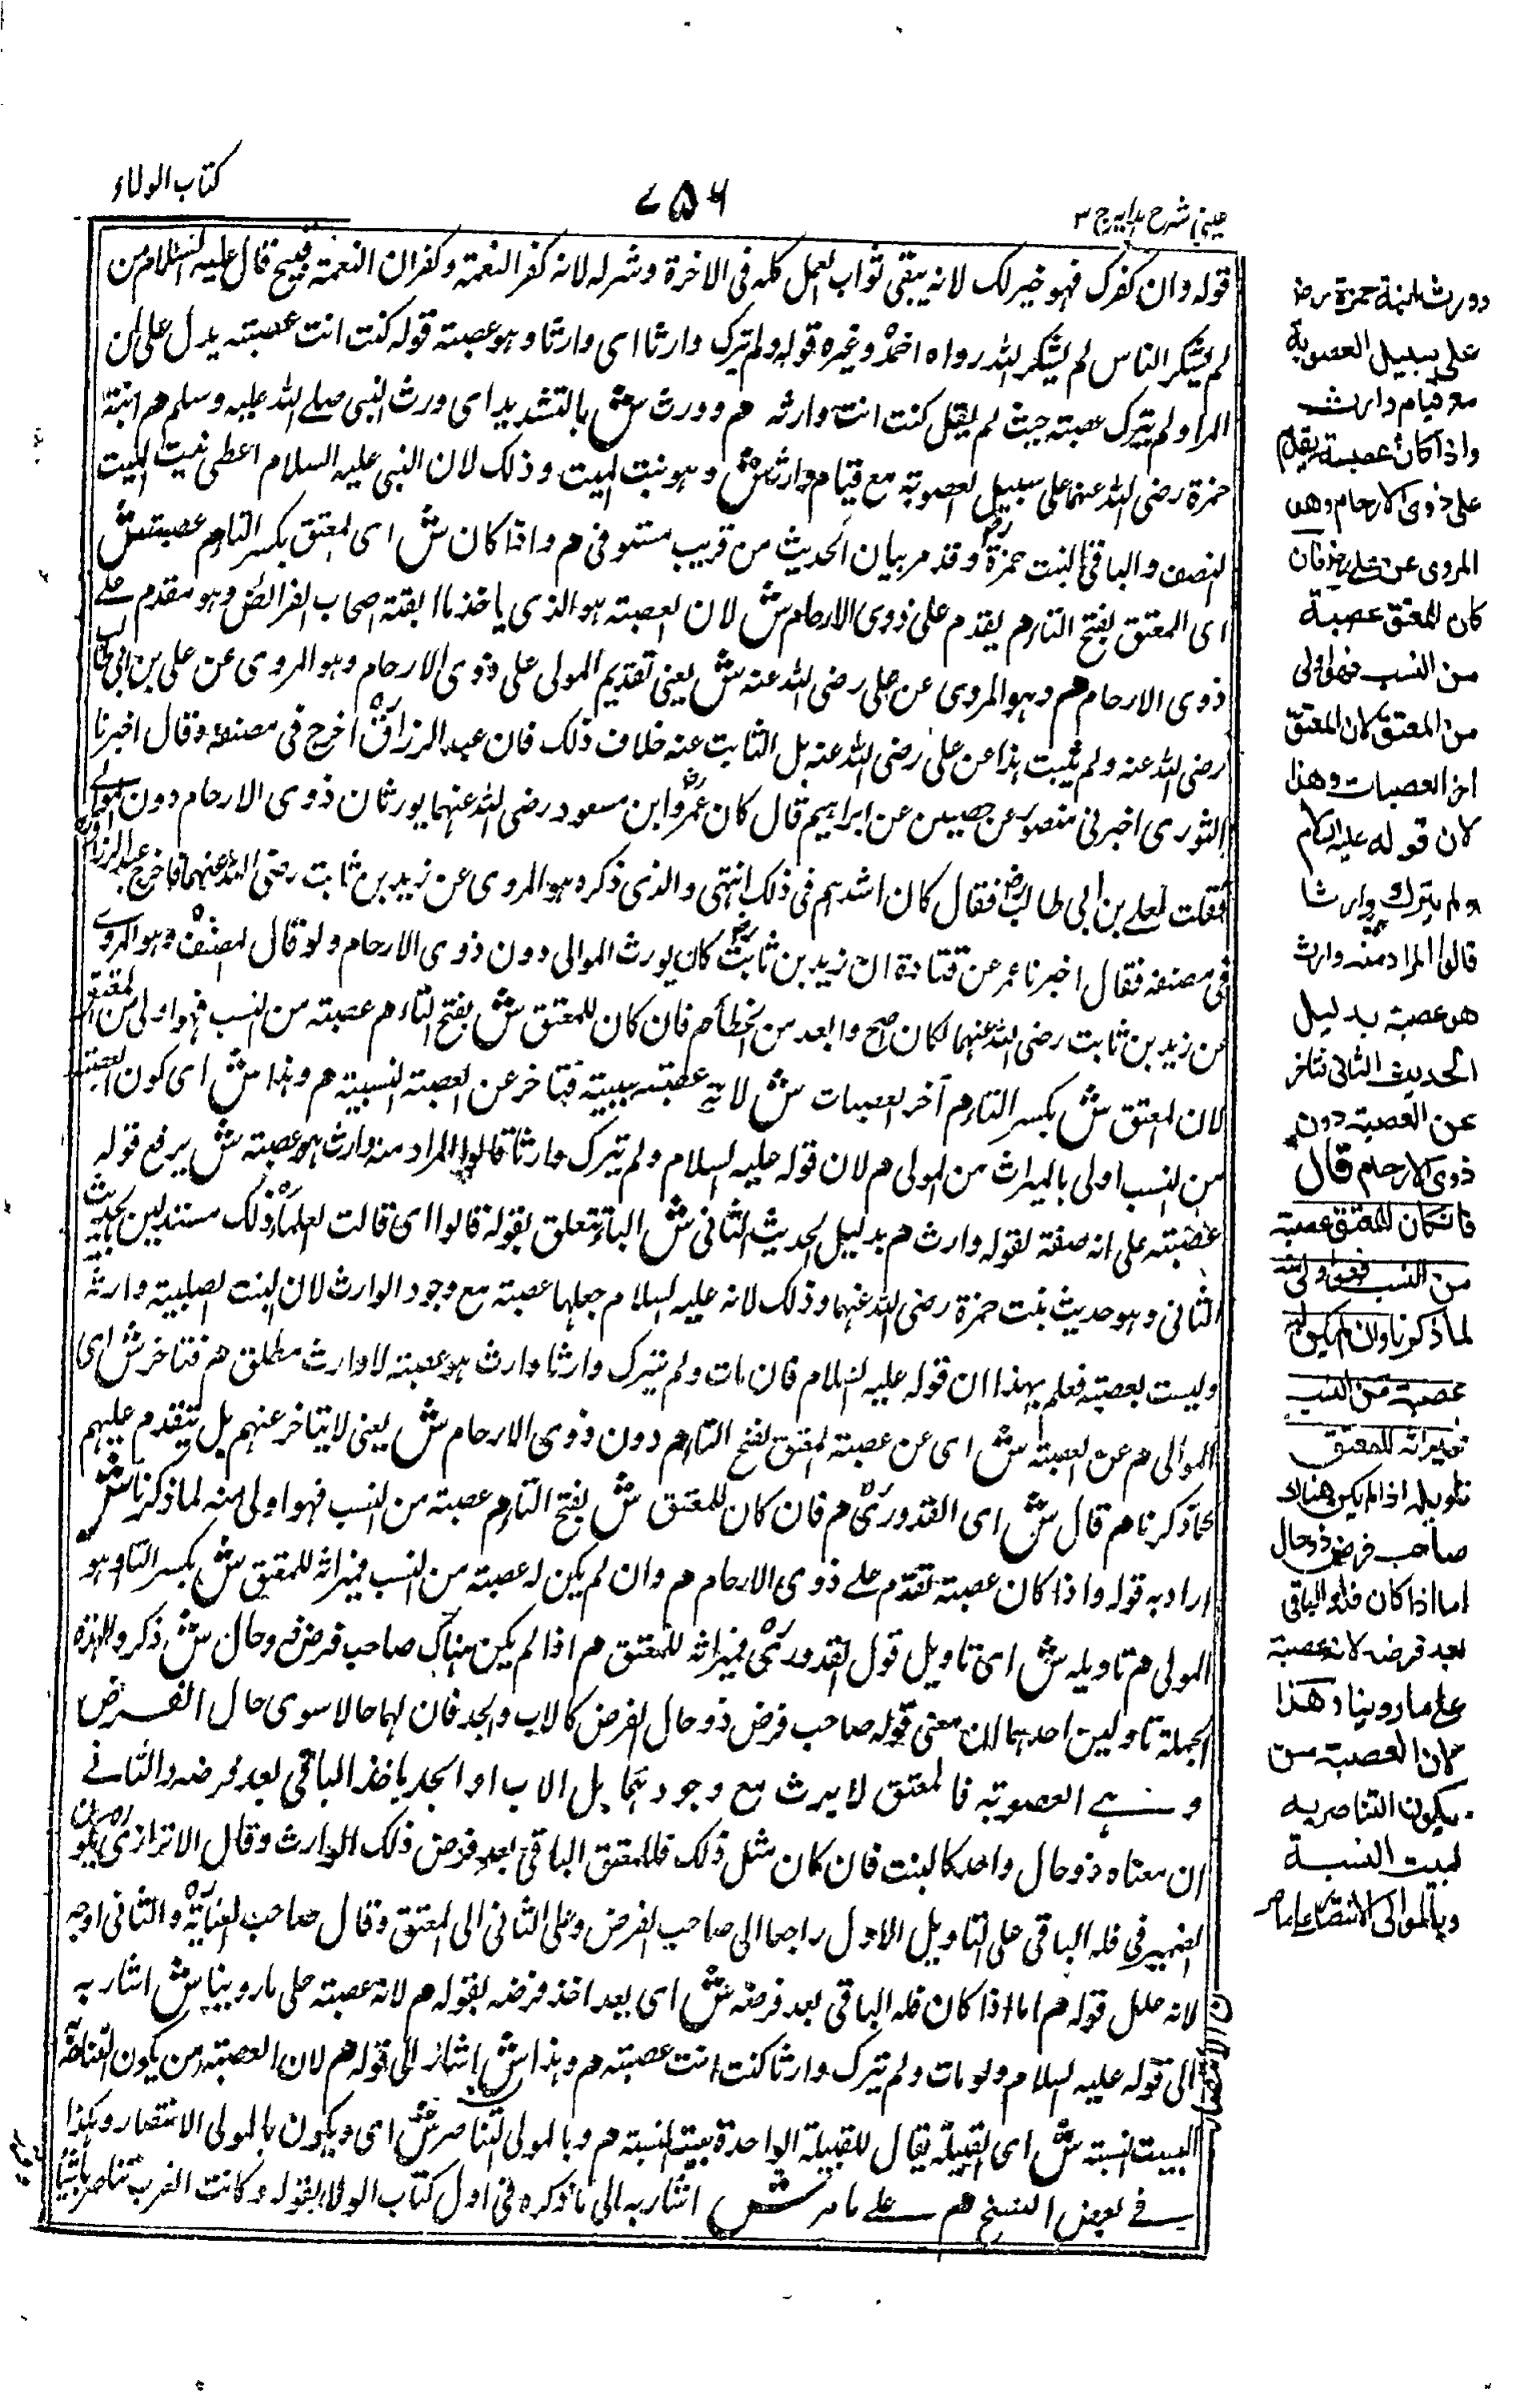 عيني شرح هدايہ ج ٣
٧٥٦
كتاب الولاء
قوله وان كفرك فهو خير لك لانه يبقى ثواب العمل كله فى الاخرة وشر له لانه كفر النعمة وكفران النعمة قبيح قال عليه السلام من
لم يشكر الناس لم يشكر الله رواه احمد وغيره قوله ولم يترك وارثا اى وارثا وهو عصبته قوله كنت انت عصبته يدل على ان
المراد ولم يترك عصبته حيث لم يقل كنت انت وارثه هم وورث ش بالتشديد اى ورث النبى صلى الله عليه وسلم هم ابنة
حمزة رضى الله عنهما على سبيل العصوبة مع قيام وارث ش وهو بنت الميت وذلك لان النبى عليه السلام اعطى بنت الميت
النصف والباقى لبنت حمزة رض وقد مر بيان الحديث من قريب مستوفى م واذا كان ش اى المعتق بكسر التاء م عصبته ش
اى المعتق بفتح التاء م يقدم على ذوى الارحام ش لان العصبة هو الذى ياخذ ما ابقته اصحاب الفرائض وهو مقدم على
ذوى الارحام هم وهو المروى عن على رضى الله عنه ش يعنى تقديم المولى على ذوى الارحام وهو المروى عن على بن ابى طالب
رضى الله عنه ولم يثبت هذا عن على رضى الله عنه بل الثابت عنه خلاف ذلك فان عبد الرزاق اخرج فى مصنفه وقال اخبرنا
الثورى اخبرنى منصور عن حصين عن ابراهيم قال كان عمر وابن مسعود رضى الله عنهما يورثان ذوى الارحام دون الموالى
فقلت لعلى بن ابى طالب رض فقال كان اشدهم فى ذلك انتهى والذى ذكره هو المروى عن زيد بن ثابت رضى الله عنهما فاخرج عبد الرزاق
فى مصنفه فقال اخبرنا معمر عن قتادة ان زيد بن ثابت رض كان يورث الموالى دون ذوى الارحام ولو قال المصنف وهو المروى
عن زيد بن ثابت رضى الله عنهما لكان اصح وابعد من الخطأ م فان كان للمعتق ش بفتح التاء م عصبته من النسب فهو اولى من المعتق
لان المعتق ش بكسر التاء م آخر العصبات ش لانه عصبته سببية فتاخر عن العصبة النسبية هم وهذا ش اى كون العصبة
من النسب اولى بالميراث من المولى م لان قوله عليه السلام ولم يترك وارثا قالوا المراد منه وارث هو عصبته ش يرفع قوله
عصبته على انه صفة لقوله وارث هم بدليل الحديث الثانى ش الباء يتعلق بقوله قالوا اى قالت العلماء ذلك مستدلين بالحديث
الثانى وهو حديث بنت حمزة رضى الله عنهما وذلك لانه عليه السلام جعلها عصبته مع وجود الوارث لان البنت الصلبية وارثة
وليست بعصبته فعلم بهذا ان قوله عليه السلام فان مات ولم يترك وارثا وارث هو عصبته لا وارث مطلق هم فتاخر ش اى
الموالى م عن العصبة ش اى عن عصبة المعتق بفتح التاء م دون ذوى الارحام ش يعنى لا يتاخر عنهم بل يتقدم عليهم
كما ذكرنا م قال ش اى القدورى م فان كان للمعتق ش بفتح التاء م عصبته من النسب فهو اولى منه لما ذكرنا ش
اراد به قوله واذا كان عصبته تقدم على ذوى الارحام هم وان لم يكن له عصبته من النسب فميراثه للمعتق ش بكسر التاء وهو
المولى م تاويله ش اى تاويل قول القدورى فميراثه للمعتق هم اذا لم يكن هناك صاحب فرض ذو حال ش ذكروا لهذه
الجملة تاويلين احدهما ان معنى قوله صاحب فرض ذو حال الفرض كالاب والجد فان لهما حالا سوى حال الفرض
وهى العصوبة فالمعتق لا يرث مع وجودهما بل الاب او الجد ياخذ الباقى بعد فرضه والثانى
ان معناه ذو حال واحد كالبنت فان كان مثل ذلك فللمعتق الباقى بعد فرض ذلك الوارث وقال الاترازى يكون
الضمير فى فله الباقى على التاويل الاول راجعا الى صاحب الفرض وعلى الثانى الى المعتق وقال صاحب العناية والثانى اوجه
لانه علل قوله هم اما اذا كان فله الباقى بعد فرضه ش اى بعد اخذ فرضه بقوله هم لانه عصبته على ما روينا ش اشار به
الى قوله عليه السلام ولو مات ولم يترك وارثا كنت انت عصبته هم وهذا ش اشار الى قوله هم لان العصبة من يكون التناصر به
لبيت النسبة ش اى القبيلة يقال للقبيلة الواحدة بيت النسبة هم وبالموالى التناصر ش اى ويكون بالمولى الانتصار وهكذا
فى بعض النسخ هم على ما مر ش اشار به الى ما ذكره فى اول كتاب الولاء بقوله وكانت العرب تتناصر باشياء
وورث ابنة حمزة رض
على سبيل العصوبة
مع قيام وارث
واذا كان عصبة يقدم
على ذوى الارحام وهو
المروى عن على رض فان
كان للمعتق عصبة
من النسب فهو اولى
من المعتق لان المعتق
اخر العصبات وهذا
لان قوله عليه السلام
ولم يترك وارثا
قالوا المراد منه وارث
هو عصبة بدليل
الحديث الثانى فتاخر
عن العصبة دون
ذوى الارحام قال
فان كان للمعتق عصبة
من النسب فهو اولى منه
لما ذكرنا وان لم يكن له
عصبة من النسب
فميراثه للمعتق
تاويله اذا لم يكن هناك
صاحب فرض ذو حال
اما اذا كان فله الباقى
بعد فرضه لانه عصبة
على ما روينا وهذا
لان العصبة من
يكون التناصر به
لبيت النسبة
وبالموالى الانتصار على ما مر